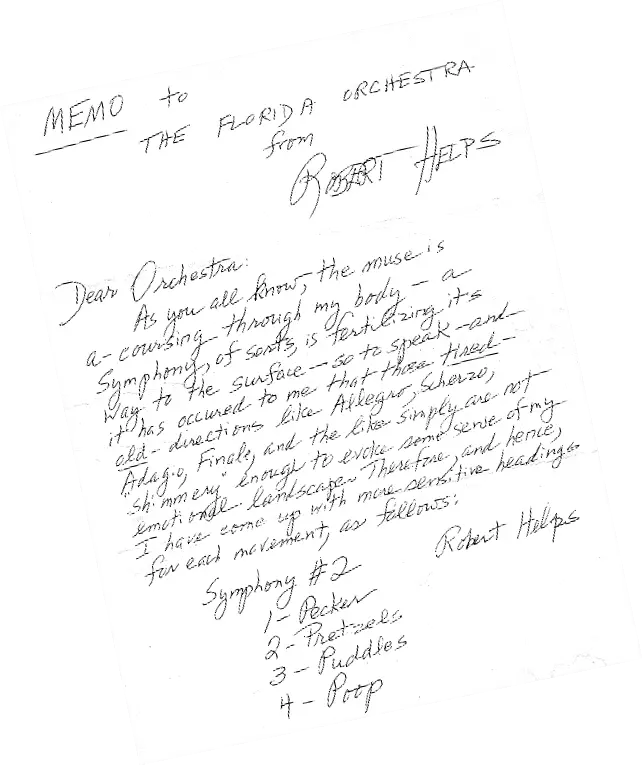 MEMO to
THE FLORIDA ORCHESTRA
from
ROBERT HELPS
Dear Orchestra:
As you all know, the muse is
a-coursing through my body - a
Symphony, of sorts, is fertilizing it's
way to the surface - so to speak - and -
it has occured to me that those tired -
old - directions like Allegro, Scherzo,
Adagio, Finale, and the like simply are not
"shimmery" enough to evoke some sense of my
emotional landscape. Therefore, and hence,
I have come up with more sensitive headings
for each movement, as follows:
Robert Helps
Symphony #2
1 - Pecker
2 - Pretzels
3 - Puddles
4 - Poop